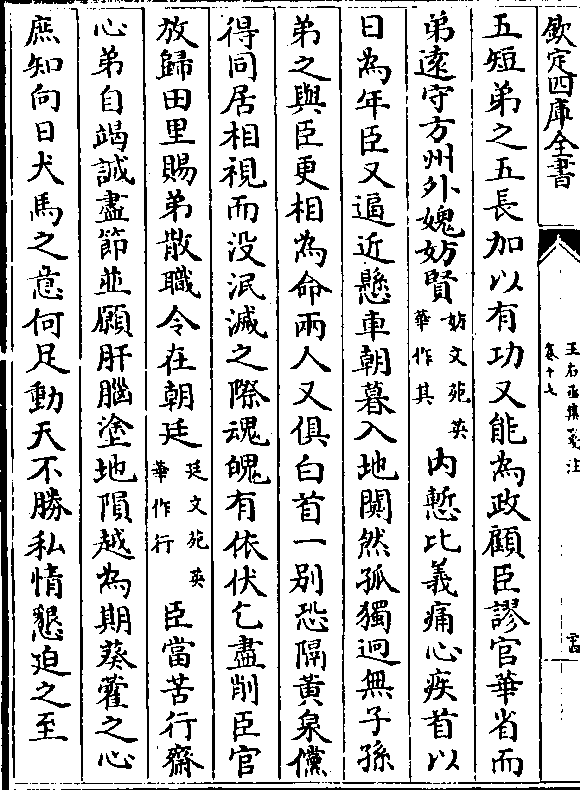 欽定四庫全書
王右丞集箋注
卷十七
五短弟之五長加以有功又能為政顧臣謬官華省而
弟遠守方州外媿妨賢妨文苑英華作其內慙比義痛心疾首以
日為年臣又逼近懸車朝暮入地闃然孤獨迥無子孫
弟之與臣更相為命兩人又俱白首一別恐隔黃泉儻
得同居相視而没泯滅之際魂魄有依伏乞盡削臣官
放歸田里賜弟散職令在朝廷廷文苑英華作行臣當苦行齋
心弟自竭誠盡節並願肝腦塗地隕越為期葵藿之心
庶知向日犬馬之意何足動天不勝私情懇迫之至